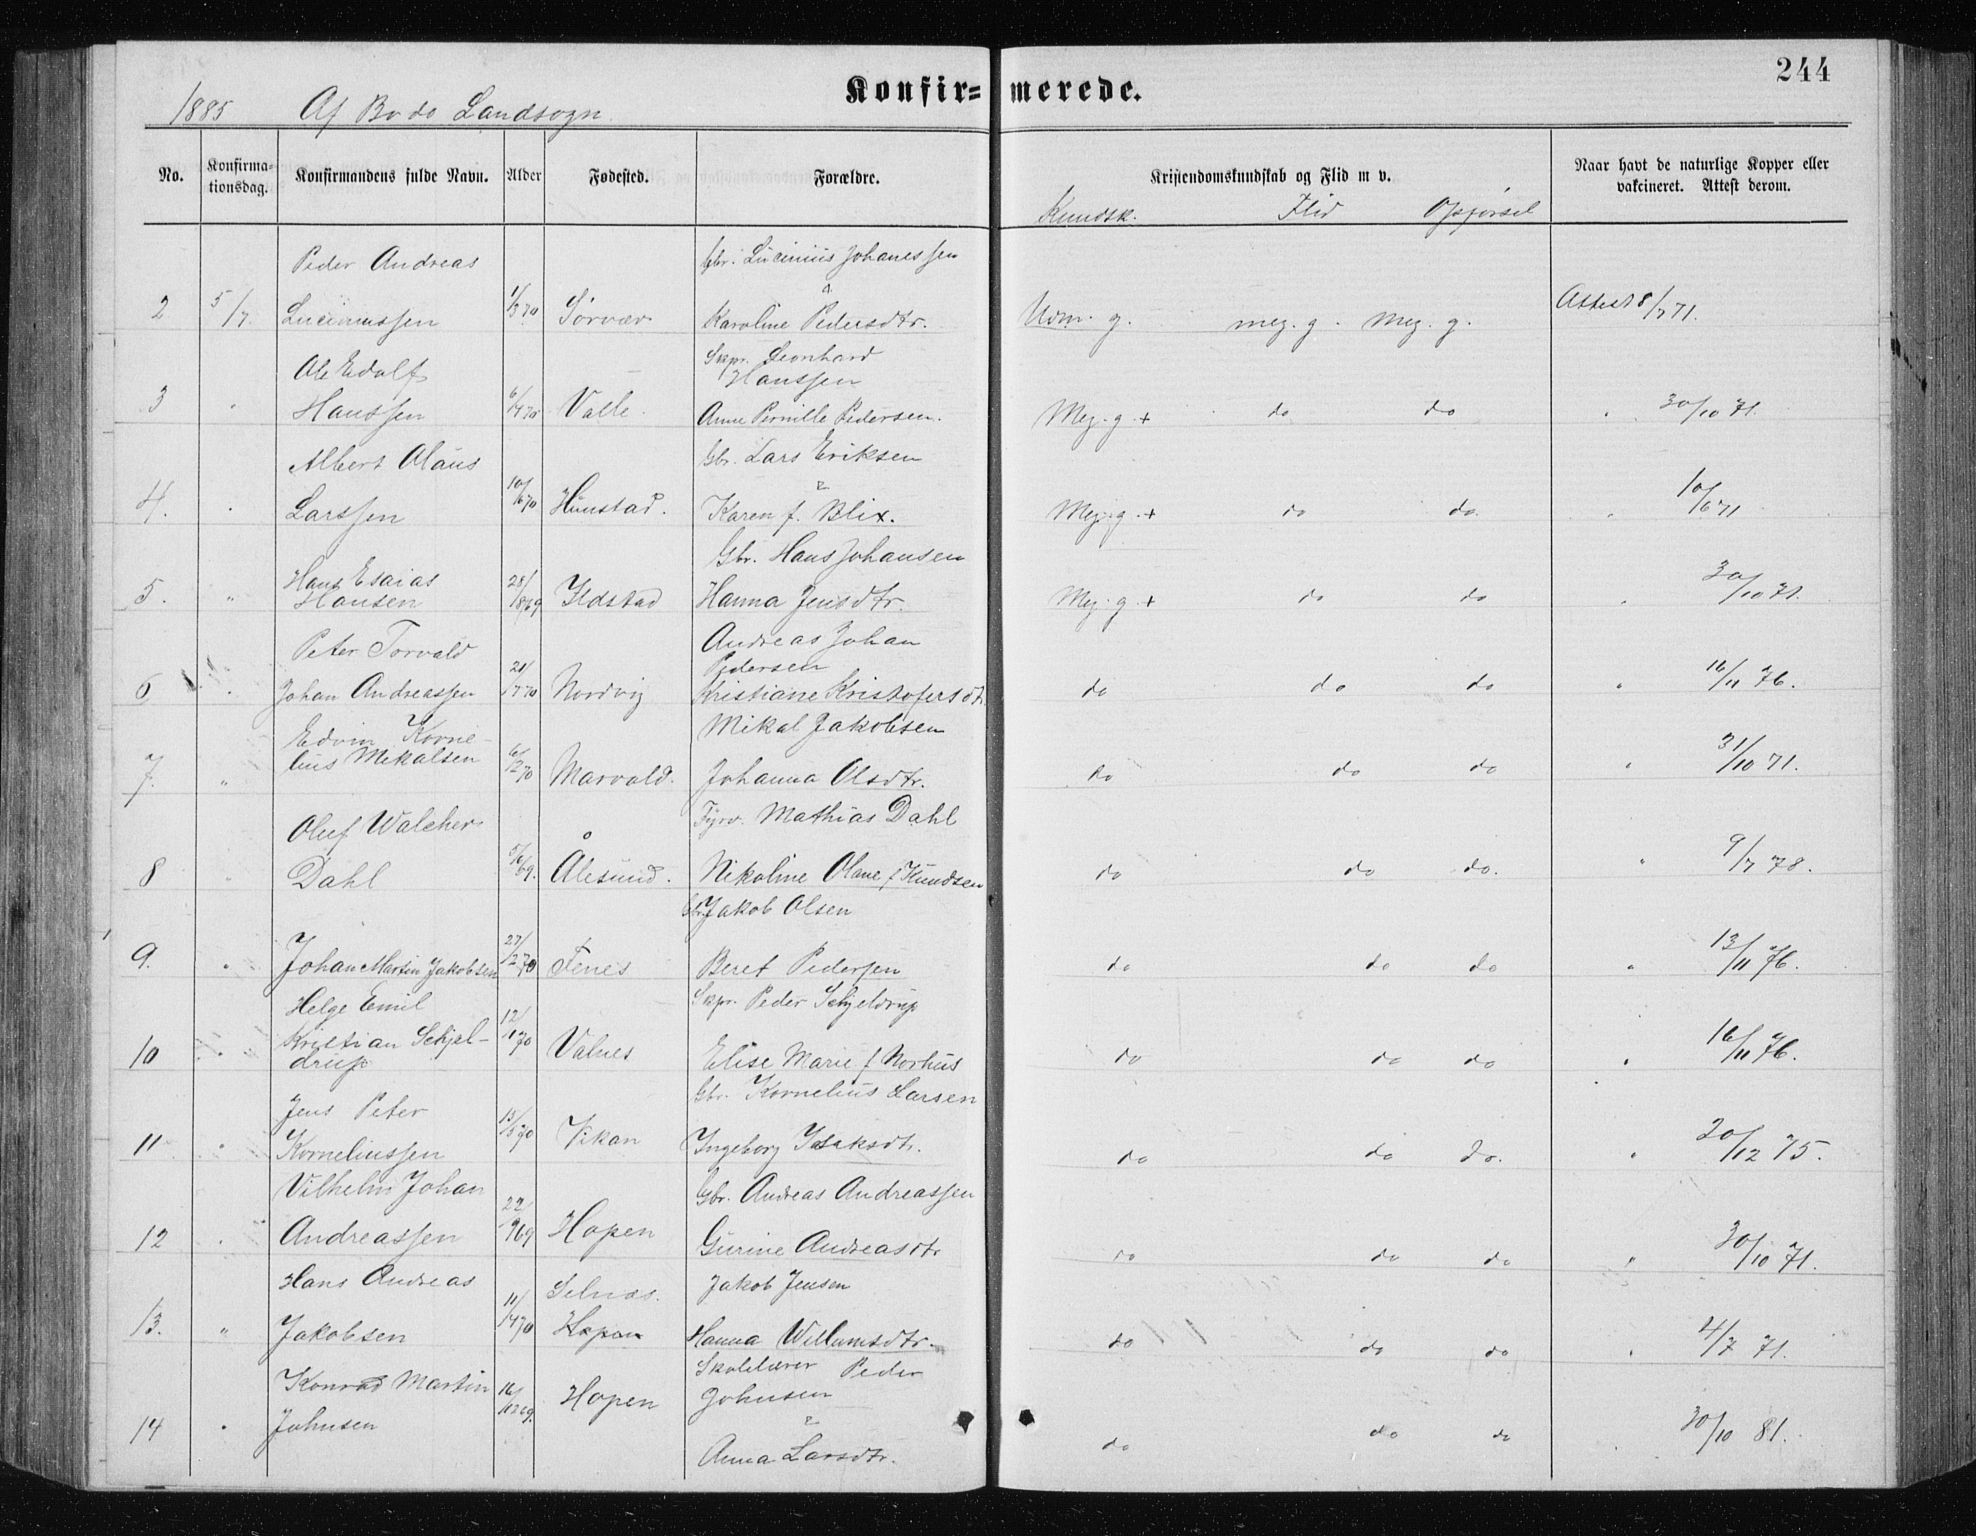 244
Konfir=merede.
1885 Af Bodo Landsogn
No. Konfirma-tionsdag. Konfirmandens fulde Navn. Alder Fødested. Forældre. Kristendomskundskab og Flid m v. Naar havt de naturlige Kopper eller vakcineret. Attest derom.
Kundsk. Flid Opførsel
Peder Andreas Gbr. Lucinius Johanessen
&
2 5/7 Luciniussen 1/3 70 Sørvær Karoline Pedersdtr. Udm. g. meg. g. Meg. g. Attest 8/7 71.
Ole Edolf Skpr. Leonhard
Hanssen
3 " Hanssen 6/4 70 Valle. Anne Pernille Pedersen. Meg. g. + do do " 30/10 71.
Albert Olaus Gbr. Lars Eriksen
&
4. " Larssen 10/6 70 Hunstad. Karen f. Blix. Meg. g + do do. " 10/6 71
Gbr. Hans Johansen
Hans Esaias
5. " Hansen 28/8 69 Ildstad Hanna Jensdtr. Meg. g + do do " 30/10 71.
Peter Torvald Andreas Johan
Pedersen
6 " Johan Andreassen 21/7 70 Nordvig Kristiane Kristofersdt. do do do " 16/11 76.
Edvin Korne- Mikal Jakobsen
7. " lius Mikalsen 6/12 70 Marvold. Johanna Olsdtr. do do do " 31/10 71.
Oluf Walcher Fyrv. Mathias Dahl
8 " Dahl 5/6 69. Ålesund. Nikoline Olane f Knudsen do do do. " 9/7 78.
Gbr. Jakob Olsen
9. " Johan Martin Jakobsen 27/2 70 Fenes Beret Pedersen do do do " 13/11 76.
Helge Emil Skpr. Peder Schjeldrup
10 " Kristian Schjel- 12/1 70 Valnes Elise Marie f Norhus do do do " 16/11 76.
drup
Jens Peter Gbr. Kornelius Larsen
11 " Korneliussen 15/5 70 Vikan Ingeborg Isaksdt. do do do. " 20/12 75.
Vilhelm Johan Gbr. Andreas Andreassen
12 " Andreassen 22/9 69 Hopen Gurine Andreasdtr do do do " 30/10 71.
Hans Andreas Selnæs. Jakob Jensen
13. " Jakobsen 11/4 70 Hopen Hanna Willumsdtr. do do do " 4/7 71.
Skolelærer Peder
Konrad Martin 16/12 69. Hopen Johnsen
&
14 " Johnsen Anna Larsdtr. do do do 30/10 81.